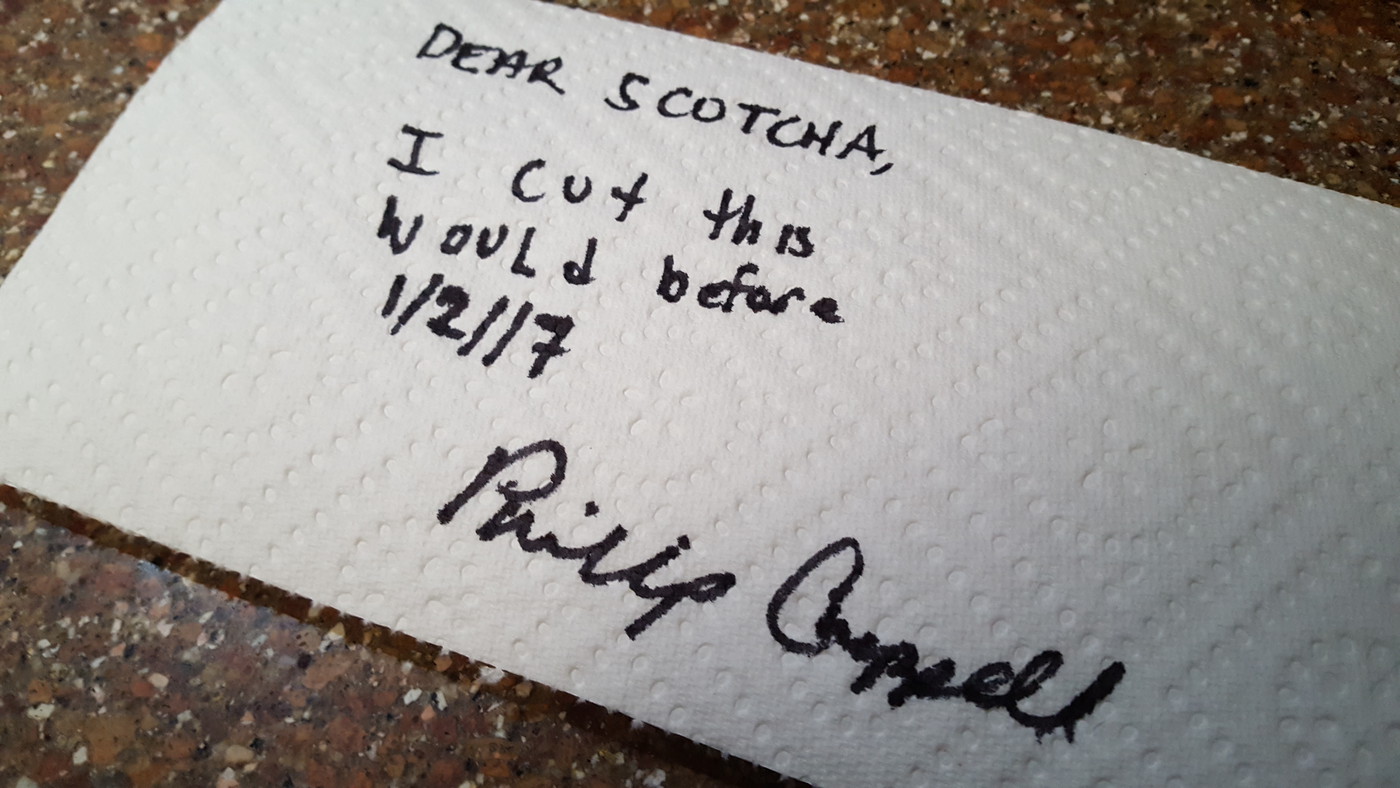 DEAR SCOTCHA,
I cut this
WOULd before
1/2//7
Phillip